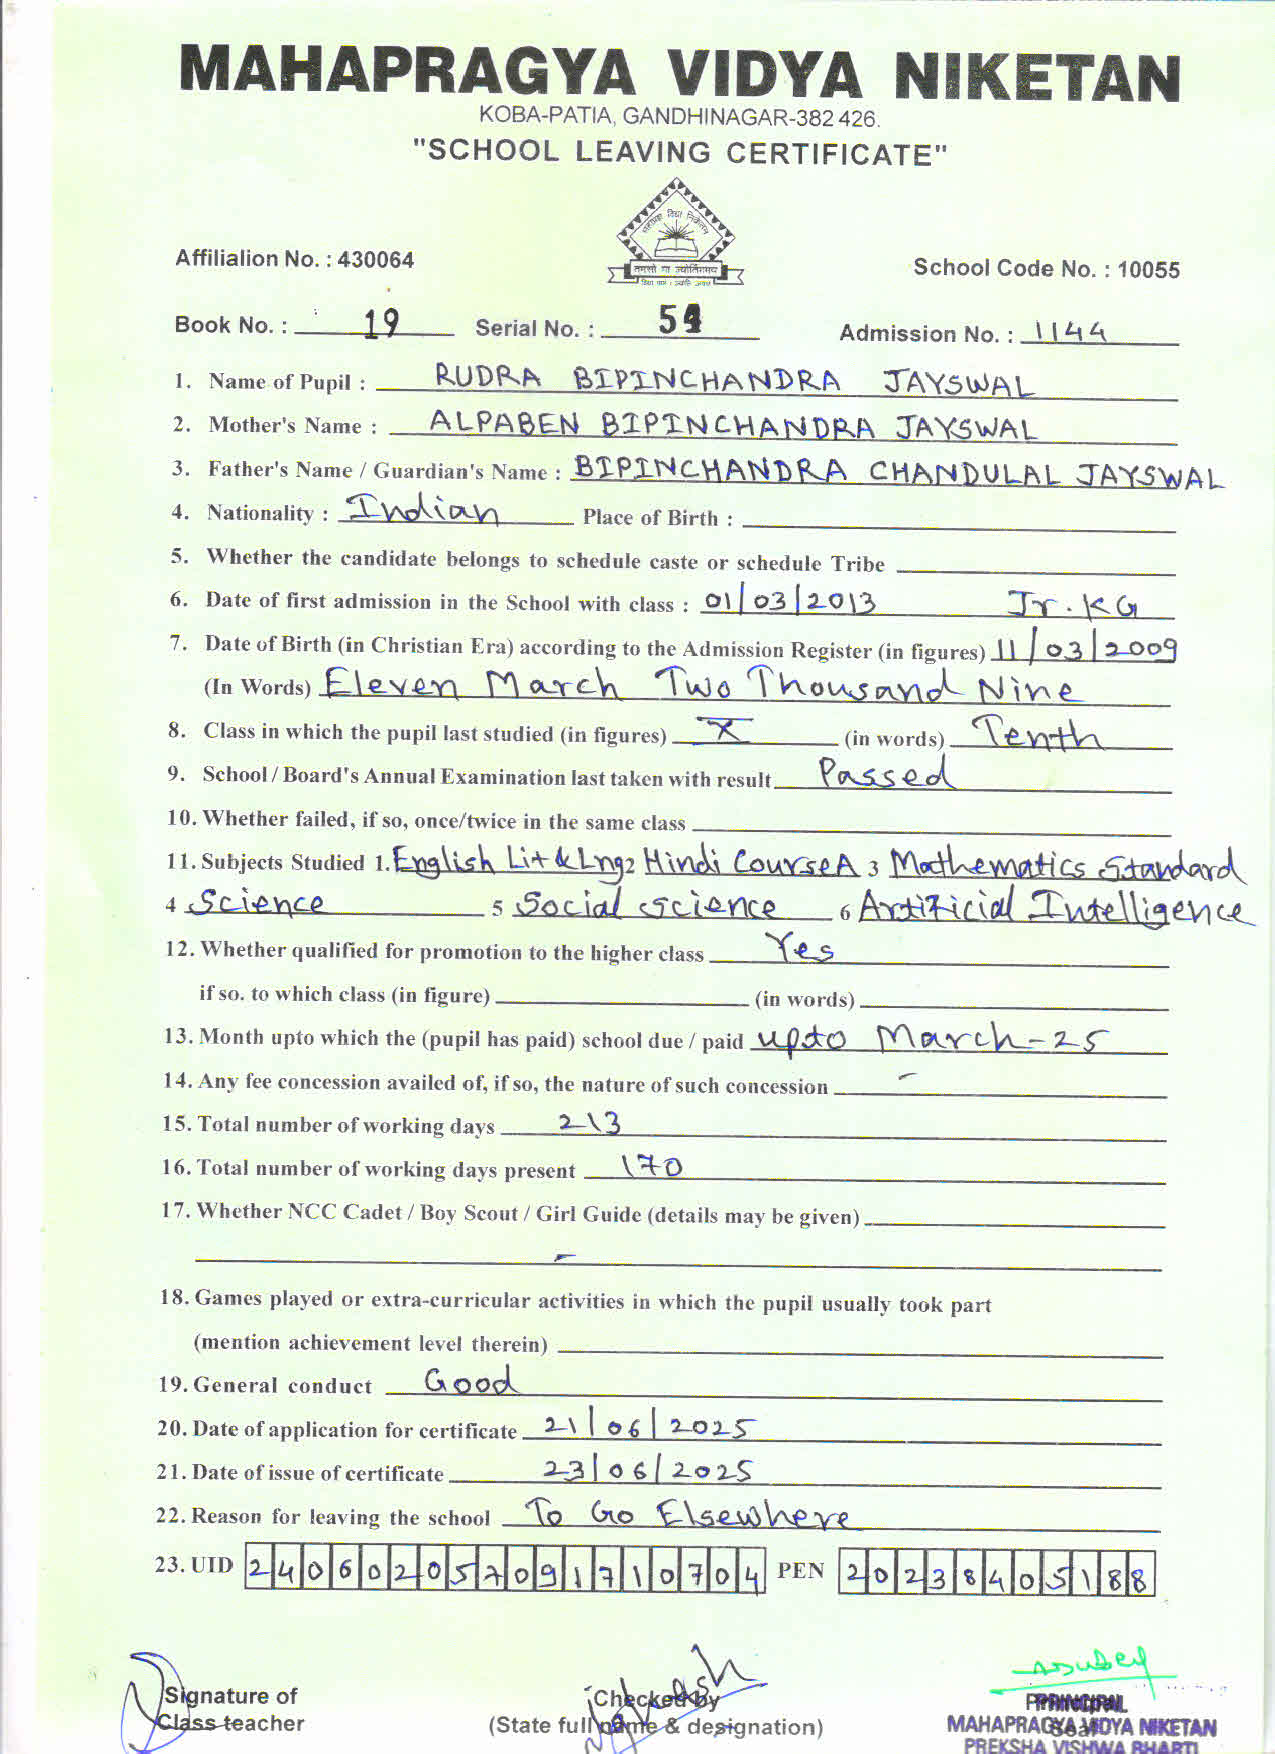 MAHAPRAGYA VIDYA NIKETAN
KOBA-PATIA, GANDHINAGAR-382 426.
"SCHOOL LEAVING CERTIFICATE"
महाप्रज्ञ विद्या निकेतन
तमसो मा ज्योतिर्गमय
Affilialion No. : 430064
School Code No. : 10055
Book No. : 19 Serial No. : 54 Admission No. : 1144
1. Name of Pupil : RUDRA BIPINCHANDRA JAYSWAL
2. Mother's Name : ALPABEN BIPINCHANDRA JAYSWAL
3. Father's Name / Guardian's Name : BIPINCHANDRA CHANDULAL JAYSWAL
4. Nationality : Indian Place of Birth :
5. Whether the candidate belongs to schedule caste or schedule Tribe
6. Date of first admission in the School with class : 01/03/2013 Jr.KG
7. Date of Birth (in Christian Era) according to the Admission Register (in figures) 11/03/2009
(In Words) Eleven March Two Thousand Nine
8. Class in which the pupil last studied (in figures) X (in words) Tenth
9. School / Board's Annual Examination last taken with result Passed
10. Whether failed, if so, once/twice in the same class
11. Subjects Studied 1. English Lit & Lng 2 Hindi Course A 3 Mathematics Standard
4 Science 5 Social science 6 Artificial Intelligence
12. Whether qualified for promotion to the higher class Yes
if so. to which class (in figure) (in words)
13. Month upto which the (pupil has paid) school due / paid upto March-25
14. Any fee concession availed of, if so, the nature of such concession -
15. Total number of working days 213
16. Total number of working days present 170
17. Whether NCC Cadet / Boy Scout / Girl Guide (details may be given)
-
18. Games played or extra-curricular activities in which the pupil usually took part
(mention achievement level therein)
19. General conduct Good
20. Date of application for certificate 21/06/2025
21. Date of issue of certificate 23/06/2025
22. Reason for leaving the school To Go Elsewhere
23. UID 240602057091710704 PEN 20238405188
Signature of
Class teacher
Checked by
(State full name & designation)
PRINCIPAL
Seal
MAHAPRAGYA VIDYA NIKETAN
PREKSHA VISHWA BHARTI